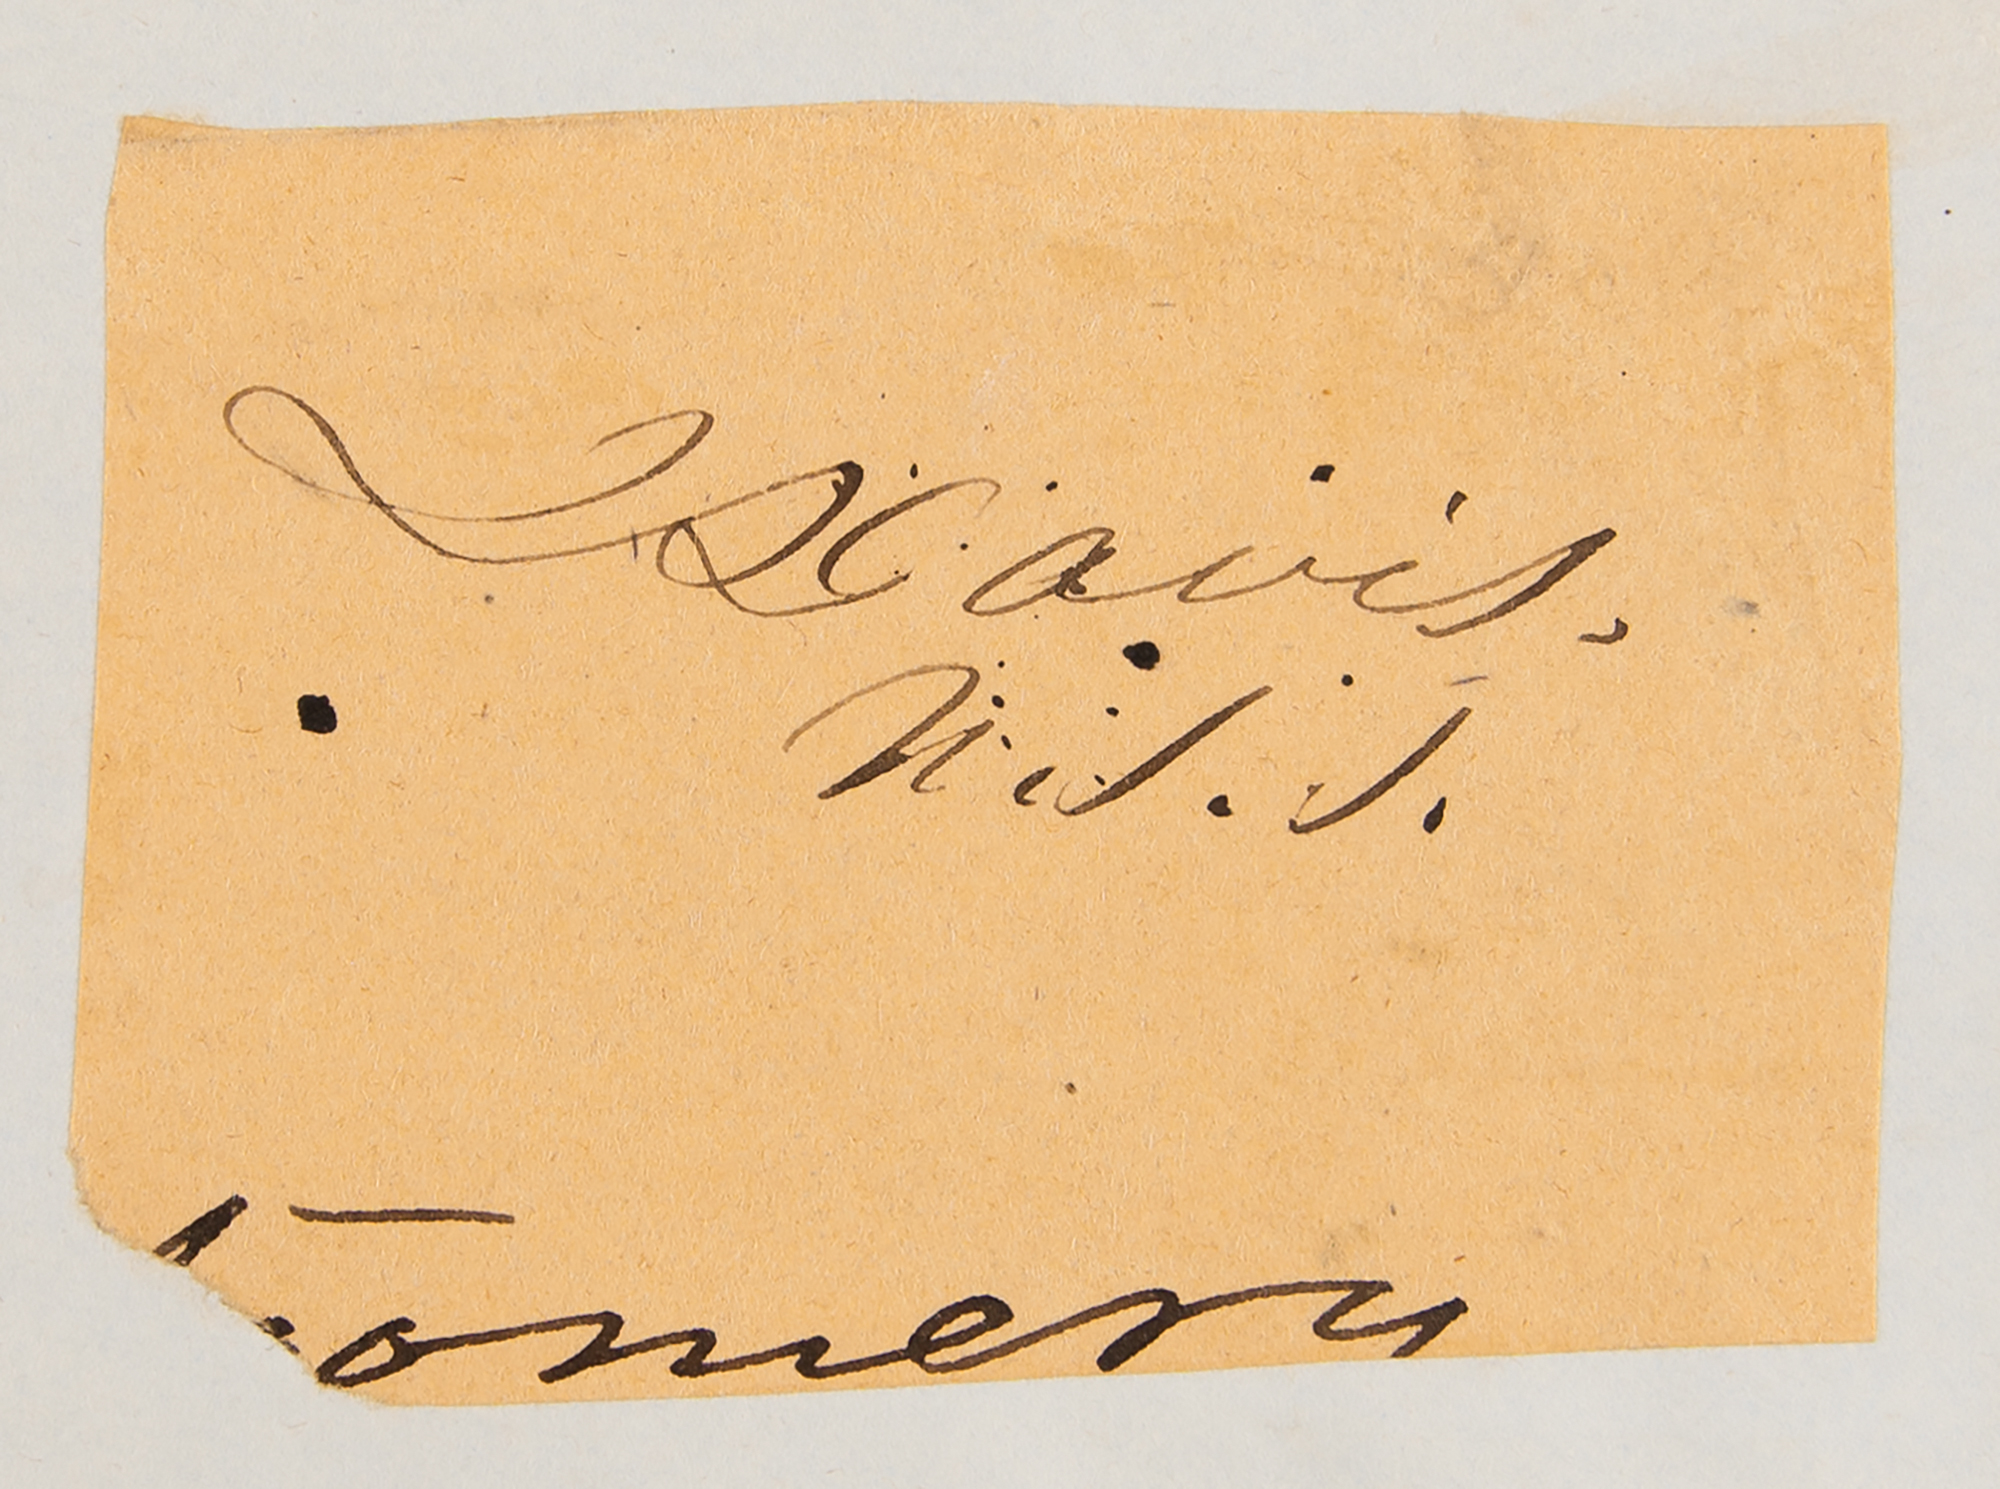 Davis,
U.S.S.
omery